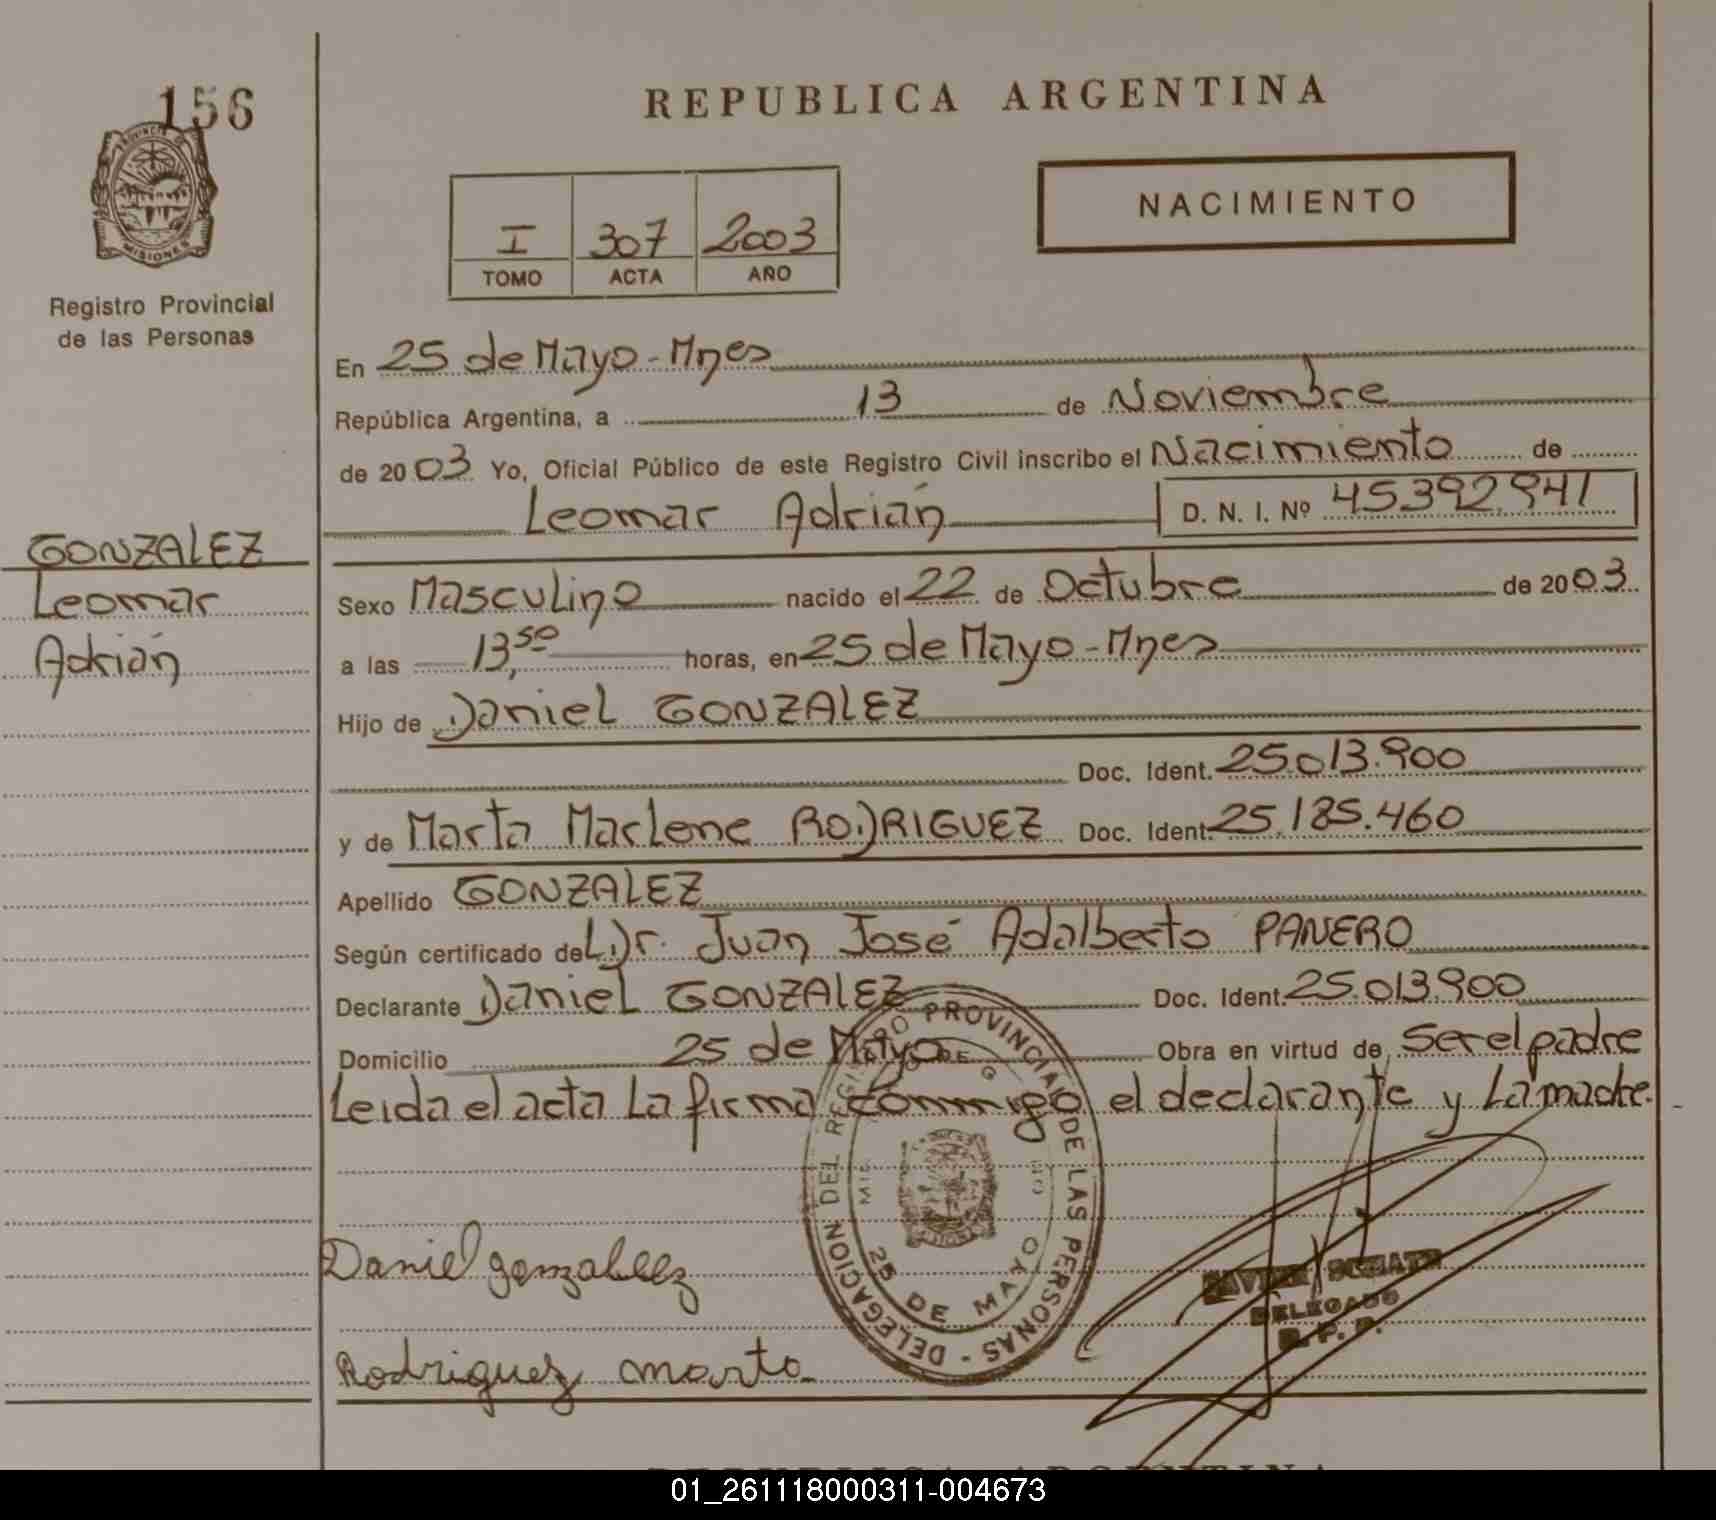 156
PROVINCIA DE
MISIONES
Registro Provincial
de las Personas
GONZALEZ
Leomar
Adrián
REPUBLICA ARGENTINA
I 307 2003
TOMO ACTA AÑO
NACIMIENTO
En 25 de Mayo - Mnes
República Argentina, a 13 de Noviembre
de 2003 Yo, Oficial Público de este Registro Civil inscribo el Nacimiento de
Leomar Adrián D. N. I. Nº 45392.941
Sexo Masculino nacido el 22 de Octubre de 2003
a las 13,50 horas, en 25 de Mayo - Mnes
Hijo de Daniel GONZALEZ
Doc. Ident. 25.013.900
y de Marta Marlene RODRIGUEZ Doc. Ident. 25.185.460
Apellido GONZALEZ
Según certificado del Dr. Juan José Adalberto PANERO
Declarante Daniel GONZALEZ Doc. Ident. 25.013.900
Domicilio 25 de Mayo Obra en virtud de Ser el padre
Leida el acta La firma conmigo el declarante y La madre.
DELEGACION DEL REGISTRO PROVINCIAL DE LAS PERSONAS -
25 DE MAYO
Daniel gonzallez
DELEGADO
R. P. P.
Rodriguez marta
REPUBLICA ARGENTINA
01_261118000311-004673